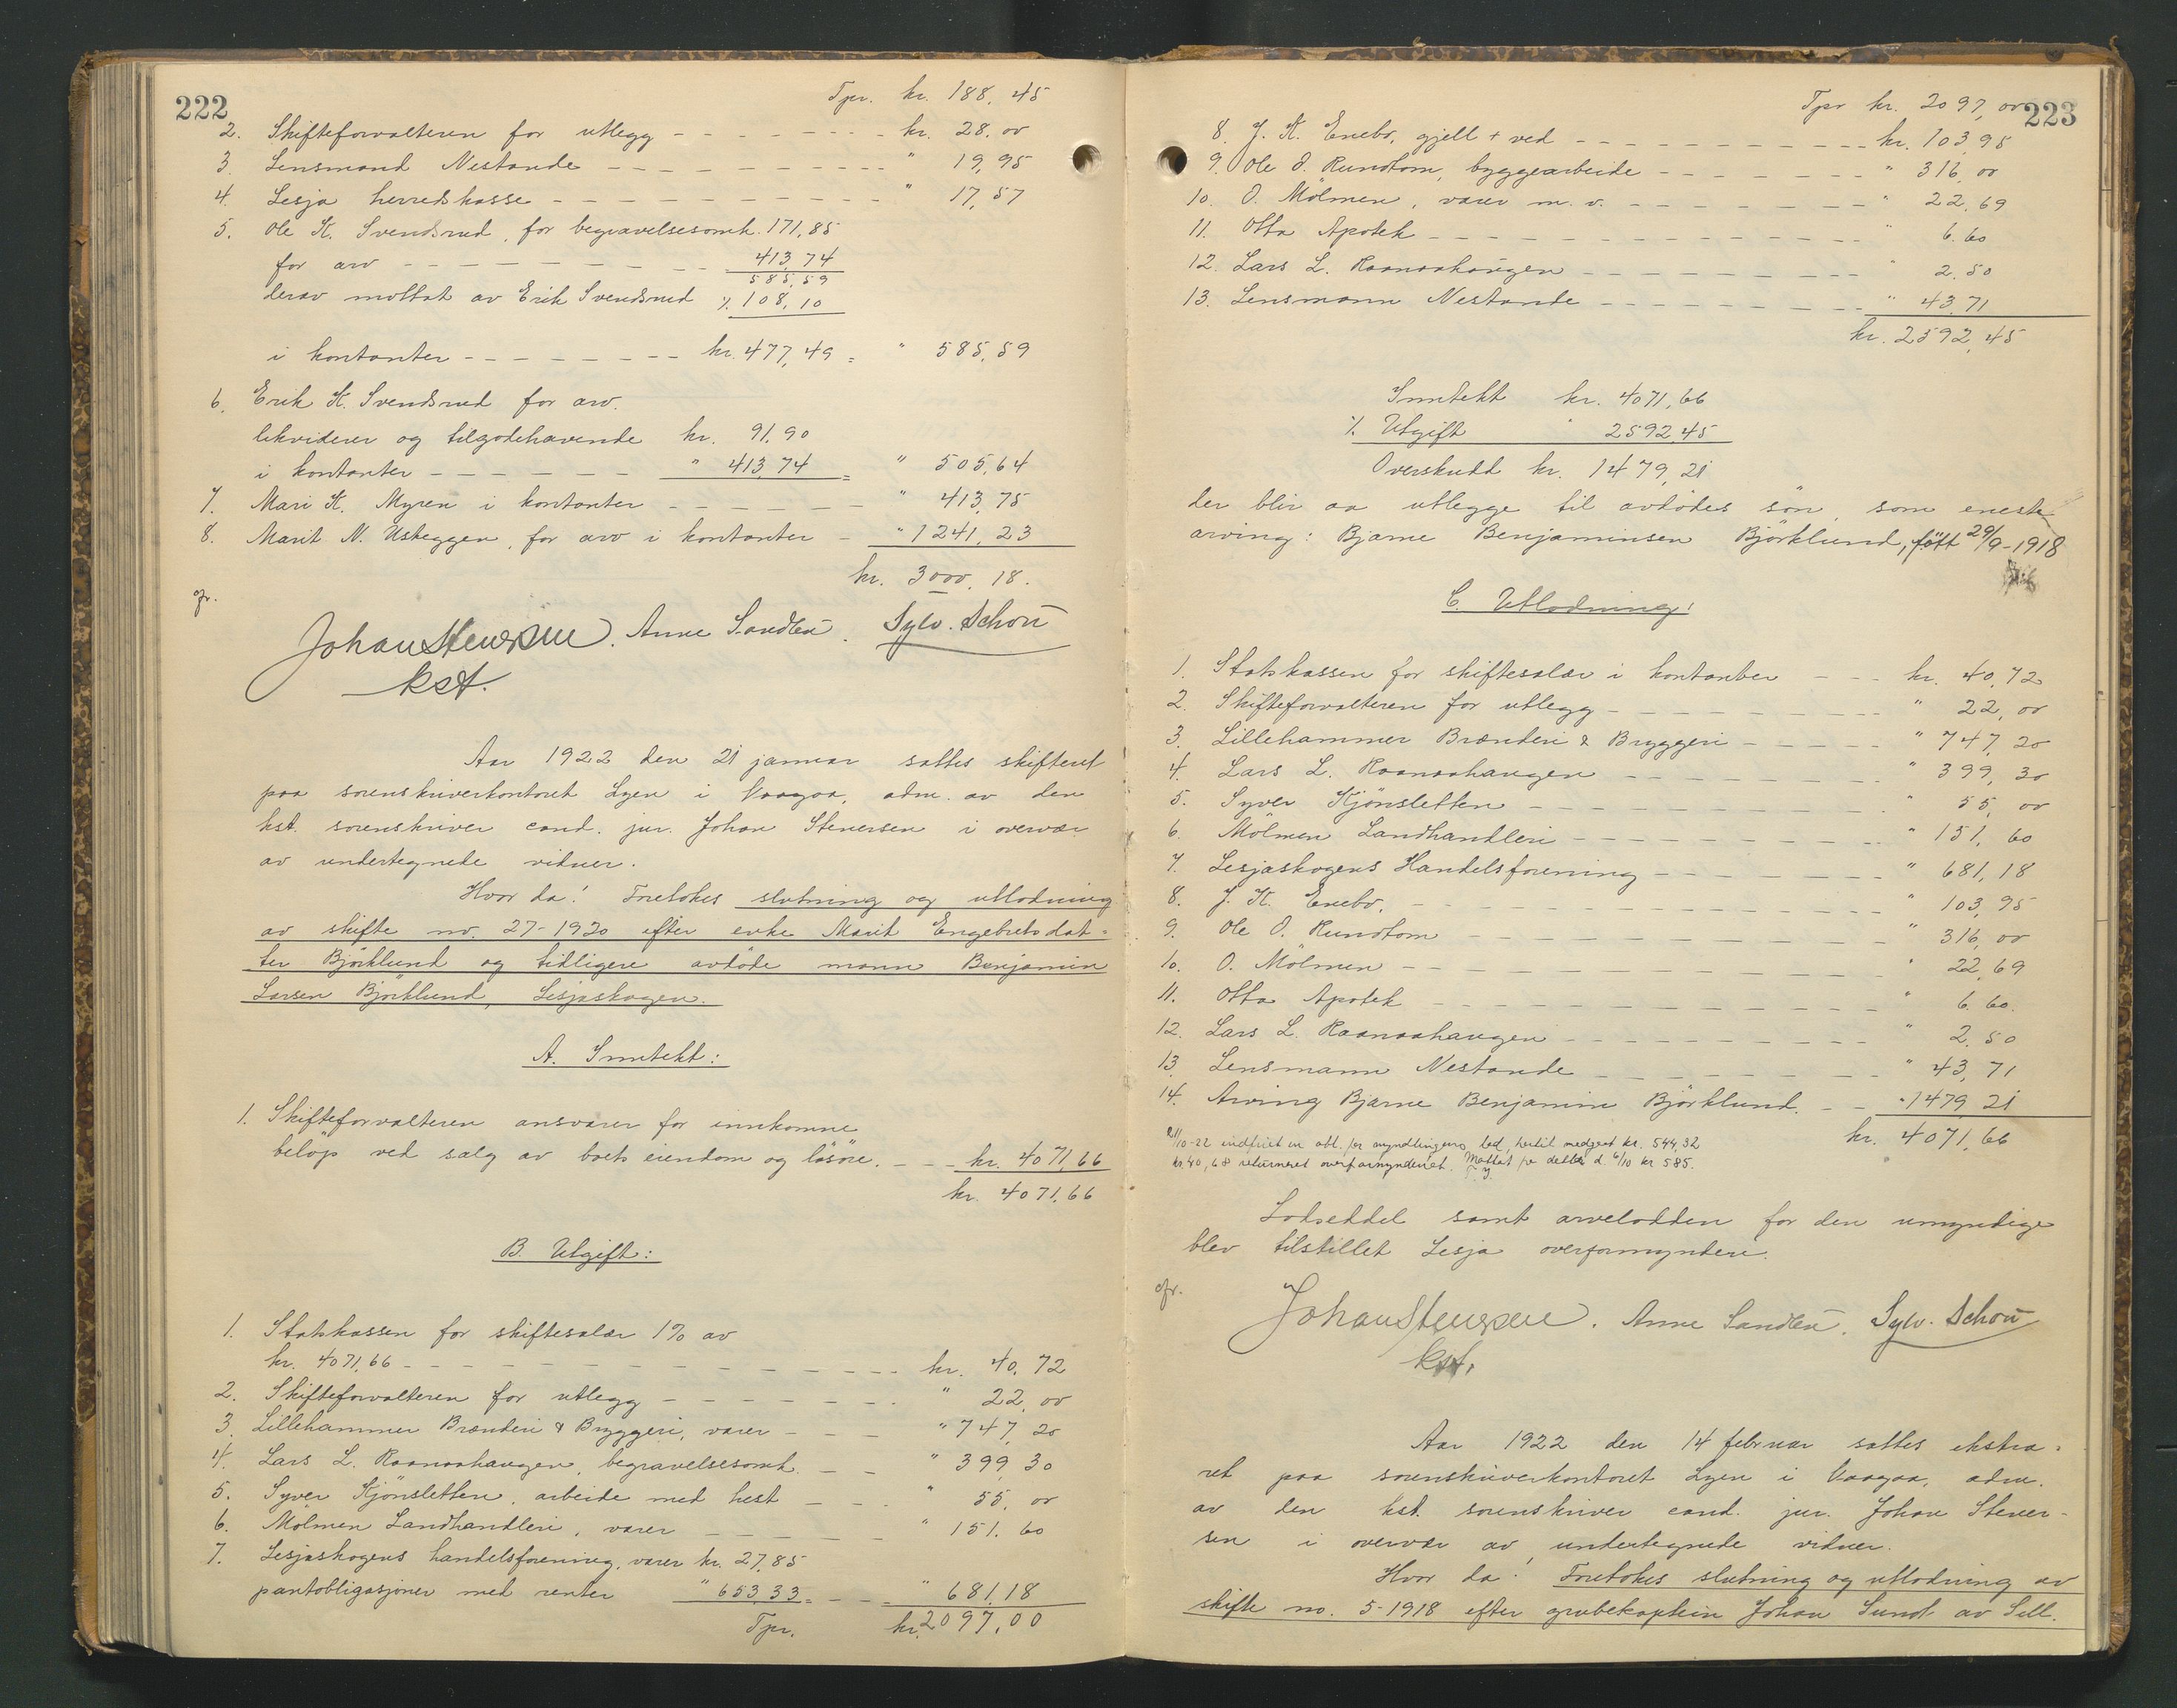 222
Tpr. kr. 188,45
2. Skifteforvalteren for utlegg - - - - - - - - kr. 28.00
3. Lensmand Nestande - - - - - - - - - - " 19,95
4. Lesja herredskasse - - - - - - - - - - " 17,57
5. Ole K. Svendsrud, for begravelsesomk. 171,85
for arv - - - - - - - - - 413,74
585,59
derav mottat av Erik Svendsrud ./. 108,10
i kontanter - - - - - - - kr. 477,49 = " 585,59
6. Erik K. Svendsrud for arv.
likviderer og tilgodehavende kr. 91,90
i kontanter - - - - - - " 413,74 = " 505,64
7. Mari K. Myren i kontanter - - - - - - " 413,75
8. Marit N. Usteggen, for arv i kontanter - " 1241,23
kr. 3000,18.
gr.
Johan Stenersen. Anne Sandbu. Sylv. Schou
kst.
Aar 1922 den 21 januar sattes skifteret
paa sorenskriverkontoret Lyen i Vaagaa, adm. av den
kst. sorenskriver cand. jur. Johan Stenersen i overvær
av undertegnede vidner.
Hvor da! Foretokes slutning og utlodning
av skifte no. 27-1920 efter enke Marit Engebretsdat=
ter Björklund og tidligere avdöde mann Benjamin
Larsen Björklund, Lesjaskogen.
A. Inntekt:
1. Skifteforvalteren ansvarer for innkomne
belöp ved salg av boets eiendom og lösöre. - - - kr. 4071,66
kr. 4071,66
B. Utgift:
1. Statskassen for skiftesalær 1% av
kr. 4071,66 - - - - - - - - - - - - kr. 40,72
2. Skifteforvalteren for utlegg - - - - - - - " 22,00
3. Lillehammer Brænderi & Bryggeri, varer - - - " 747,20
4. Lars L. Raanaahaugen, begravelsesomk. - - " 399,30
5. Syver Kjönsletten, arbeide med hest - - - " 55,00
6. Mölmen Landhandleri, varer - - - - - " 151,60
7. Lesjaskogens handelsforening, varer kr. 27,85
pantobligasjoner med renter " 653,33 = - - = " 681,18
Tpr. kr. 2097,00
223
Tpr kr. 2097,00
8. J. K. Enebo, gjell + ved - - - - - - - - - kr. 103,95
9. Ole O. Rundtom, byggearbeide - - - - - - - " 316,00
10. O. Mölmen, varer m. v. - - - - - - - - " 22,69
11. Otta Apotek - - - - - - - - - - - - - " 6,60
12. Lars L. Raanaahaugen - - - - - - - - - " 2,50
13. Lensmann Nestande - - - - - - - - - " 43,71
kr. 2592,45
Inntekt kr. 4071,66
./. Utgift " 2592,45
Overskudd kr. 1479,21
der blir aa utlegge til avdödes sön, som eneste
arving: Bjarne Benjaminsen Björklund, födt 29/9-1918
C. Utlodning:
1. Statskassen for skiftesalær i kontanter - - - kr. 40,72
2. Skifteforvalteren for utlegg - - - - - - - - " 22,00
3. Lillehammer Brænderi & Bryggeri - - - - - " 747,20
4. Lars L. Raanaahaugen - - - - - - - - - " 399,30
5. Syver Kjönsletten - - - - - - - - - - - " 55,00
6. Mölmen Landhandleri - - - - - - - - - " 151,60
7. Lesjaskogens Handelsforening - - - - - - - " 681,18
8. J. K. Enebo. - - - - - - - - - - - - - " 103,95
9. Ole O. Rundtom - - - - - - - - - - - " 316,00
10. O. Mölmen - - - - - - - - - - - - - " 22,69
11. Otta Apotek - - - - - - - - - - - - " 6,60.
12. Lars L. Raanaahaugen - - - - - - - - - " 2,50
13. Lensmann Nestande - - - - - - - - - " 43,71
14. Arving Bjarne Benjamin Björklund. - - " 1479,21
kr. 4071,66
10-22 indfriet en obl. for myndlingens lod, hertil medgaat kr. 544,32
kr 40,68 returneret overformynderiet. Mottat for dette d. 6/10 kr 585.
Lodseddel samt arvelodden for den umyndige
blev tilstillet Lesja overformynderi.
gr.
Johan Stenersen. Anne Sandbu. Sylv. Schou
kst.
Aar 1922 den 14 februar sattes ekstra=
ret paa sorenskriverkontoret Lyen i Vaagaa, adm.
av den kst. sorenskriver cand. jur. Johan Stener-
sen i overvær av undertegnede vidner.
Hvor da! Foretokes slutning og utlodning av
skifte no. 5-1918 efter grubekaptein Johan Sund av Sell.